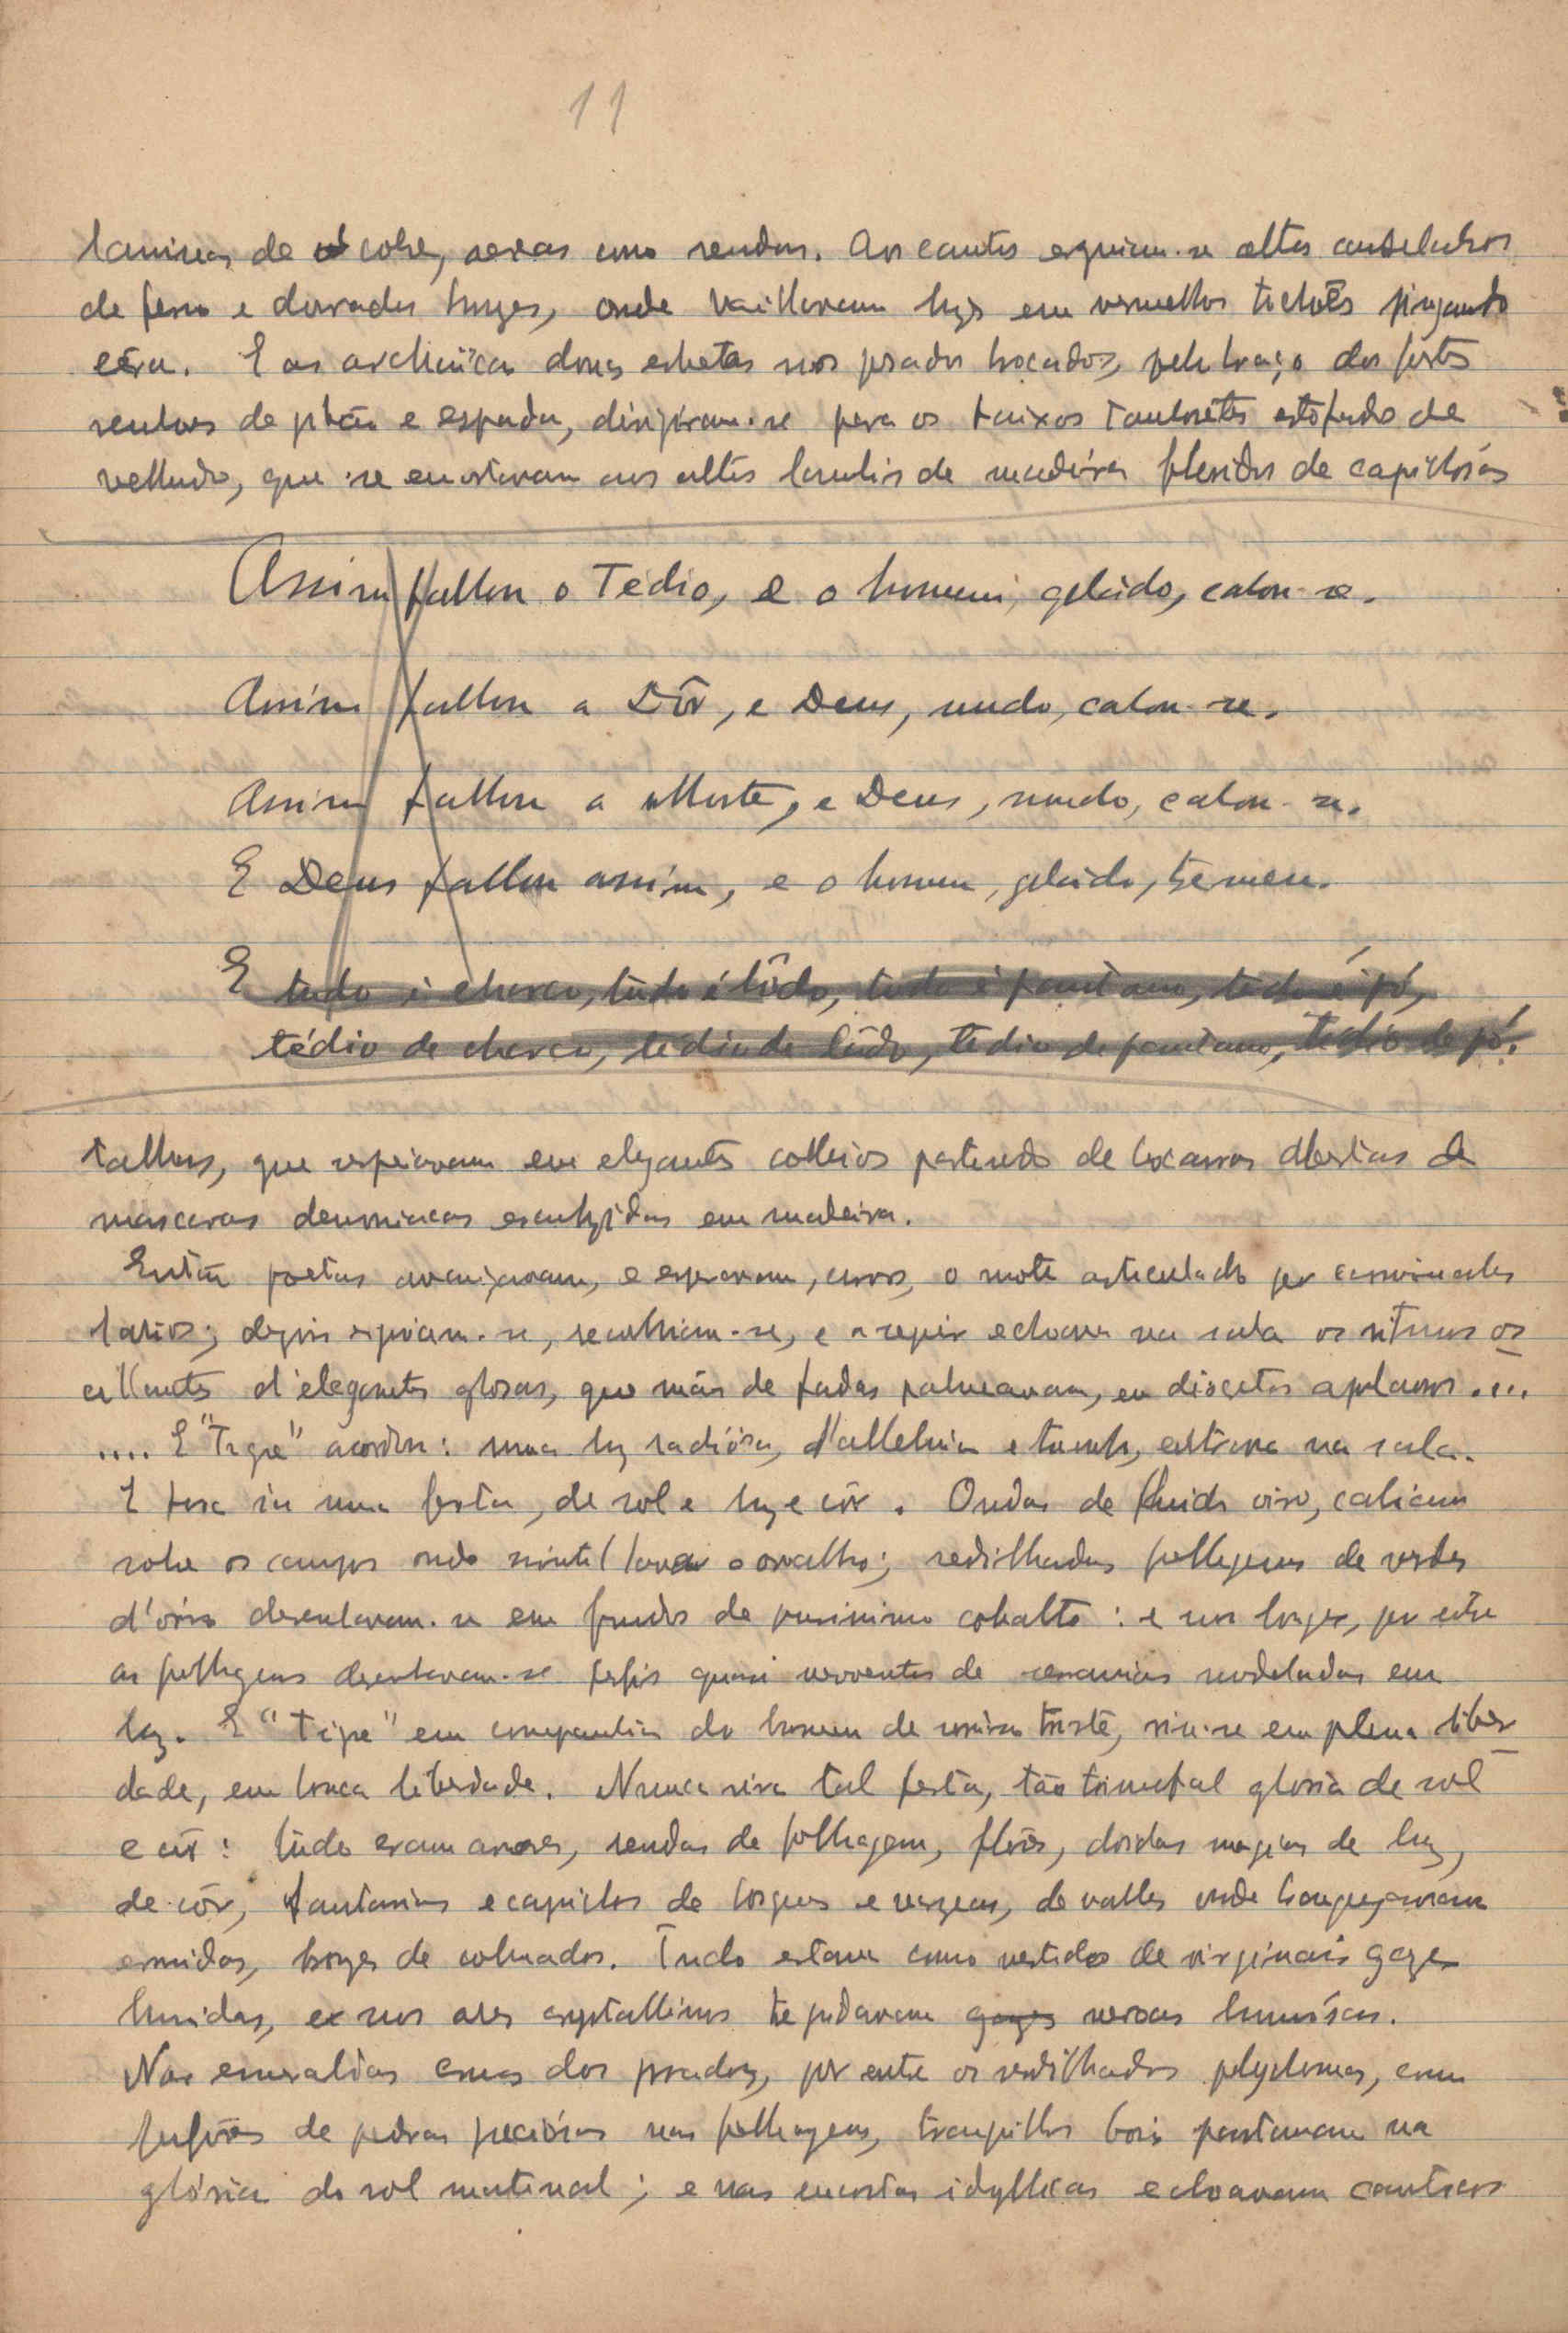 11
laminas de cobre, aereas como rendas. Aos cantos erguiam-se altos candelabros
de ferro e dourados bronzes, onde vacillavam luzes em vermelhos tochões pingando
cêra. E as archaïcas donas esbeltas nos pesados brocados, pelo braço dos fortes
senhores de gibão e espada, dirigiram-se para os baixos tamboretes estofados de
velludo, que se encostavam aos altos lambris de madeira floridos de capichósos
Assim fallou o Tedio, e o homem, gelado, calou-se.
Assim fallou a Dôr, e Deus, mudo, calou-se.
Assim fallou a Morte, e Deus, mudo, calou-se.
E Deus fallou assim, e o homem, gelado, tremeu.
E tudo é charco, tudo é lôdo, tudo é pantano, tudo é pó,
tédio de charco, tedio de lôdo, tedio de pantano, tedio de pó.
talhos, que se erguiam em elegantes colleios partindo de bocarras abertas de
mascaras demoniacas esculpidas em madeira.
Então poetas avançavam, e esperavam, curvos, o mote articulado por
labios; depois erguiam-se, recolhiam-se, e a seguir echoavam na sala os ritmos os
cillantes d'elegantes glosas, que mãos de fadas palmeavam, em discretos aplausos....
.... E "Tigre" acordou: uma luz radiósa, d'alleluia e triumpho, entrava na sala.
E fora ia uma festa, de sol e luz e côr. Ondas de fluido oiro, cahiam
sobre os campos onde scintillava o orvalho; rendilhadas folhagens de verdes
d'oiro desenhavam-se em fundos de purissimo cobalto: e aos longes, por entre
as folhagens desenhavam-se perfis quasi de serranias modeladas em
luz. E "Tigre" em companhia do homem de sorriso triste, viu-se em plena liber
dade, em louca liberdade. Nunca vira tal festa, tão triunfal gloria de sol
e côr: tudo eram arvores, rendas de folhagem, flôres, doidas magias de luz,
de côr, fantasias e caprichos de bosques e vergeis, de valles onde branquejavam
ermidas, longes de cobreados. Tudo estava como vestido de virginais gazes
humidas, e nos ares crystallinos trepidavam gazes nevoas luminósas.
Nas esmeraldas cruas dos prados, por entre os rendilhados polychromos, com
fulgôres de pedras preciósas nas folhagens, tranquillos bois pastavam na
glória do sol matinal; e nas encostas idyllicas echoavam cantares